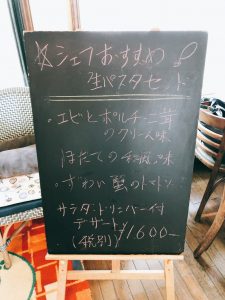 ☆シェフおすすめ
生パスタセット
・エビとポルチーニ茸
のクリーム味
ほたての和風味
・ずわい蟹のトマト
サラダ・ドリンクバー付
デザート
(税別) ¥1600-